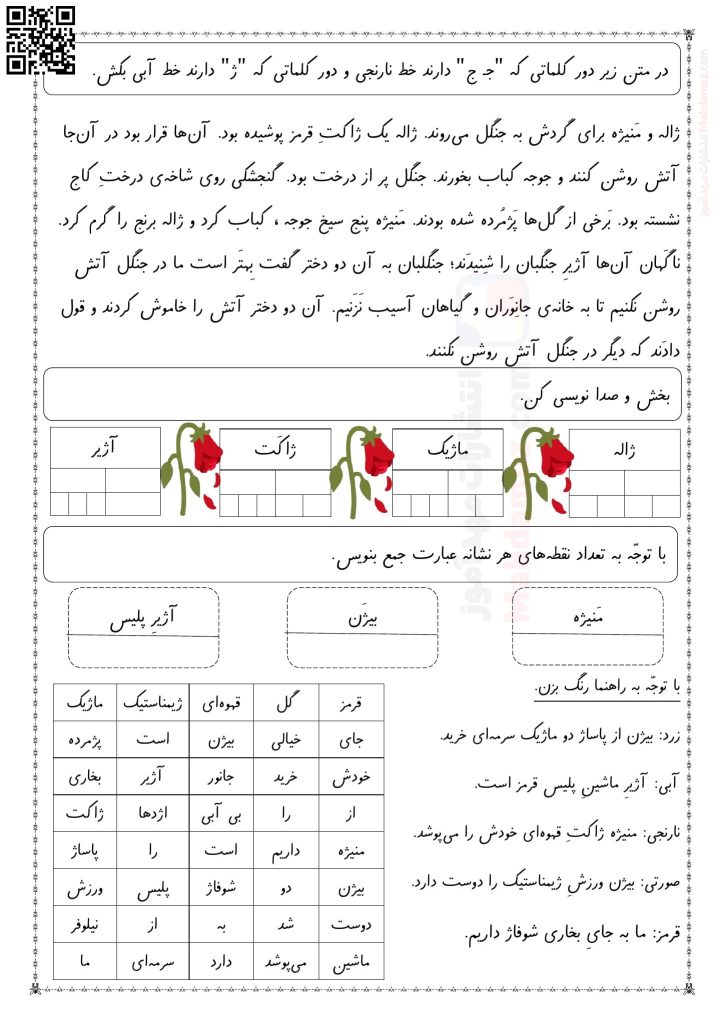 در متن زیر دور کلماتی که "جـ ج" دارند خط نارنجی و دور کلماتی که "ژ" دارند خط آبی بکش.
ژاله و مَنیژه برای گردش به جنگل می‌روند. ژاله یک ژاکتِ قرمز پوشیده بود. آن‌ها قرار بود در آن‌جا
آتش روشن کنند و جوجه کباب بخورند. جنگل پر از درخت بود. گنجشکی روی شاخه‌ی درختِ کاج
نشسته بود. بَرخی از گل‌ها پَژمُرده شده بودند. مَنیژه پنج سیخ جوجه ، کباب کرد و ژاله برنج را گرم کرد.
ناگهان آن‌ها آژیرِ جنگبان را شِنیدَند؛ جنگلبان به آن دو دختر گفت بِهتَر است ما در جنگل آتش
روشن نکنیم تا به خانه‌ی جانِوَران و گیاهان آسیب نَزَنیم. آن دو دختر آتش را خاموش کردند و قول
دادَند که دیگر در جنگل آتش روشن نکنند.
بخش و صدا نویسی کن.
ژاله ماژیک ژاکَت آژیر
با توجّه به تعداد نقطه‌های هر نشانه عبارت جمع بنویس.
مَنیژه بیژَن آژیرِ پلیس
با توجّه به راهنما رنگ بزن.
زرد: بیژن از پاساژ دو ماژیک سرمه‌ای خرید.
آبی: آژیرِ ماشینِ پلیس قرمز است.
نارنجی: منیژه ژاکتِ قهوه‌ای خودش را می‌پوشد.
صورتی: بیژن ورزشِ ژیمناستیک را دوست دارد.
قرمز: ما به جایِ بخاری شوفاژ داریم.
قرمز گل قهوه‌ای ژیمناستیک ماژیک
جای خیالی بیژن است پژمرده
خودش خرید جانور آژیر بخاری
از را بی آبی اژدها ژاکت
منیژه داریم است را پاساژ
بیژن دو شوفاژ پلیس ورزش
دوست شد به از نیلوفر
ماشین می‌پوشد دارد سرمه‌ای ما
انتشارات مهدآموز
Mahdamoz.com
انتشارات مهدآموز Mahdamoz.com